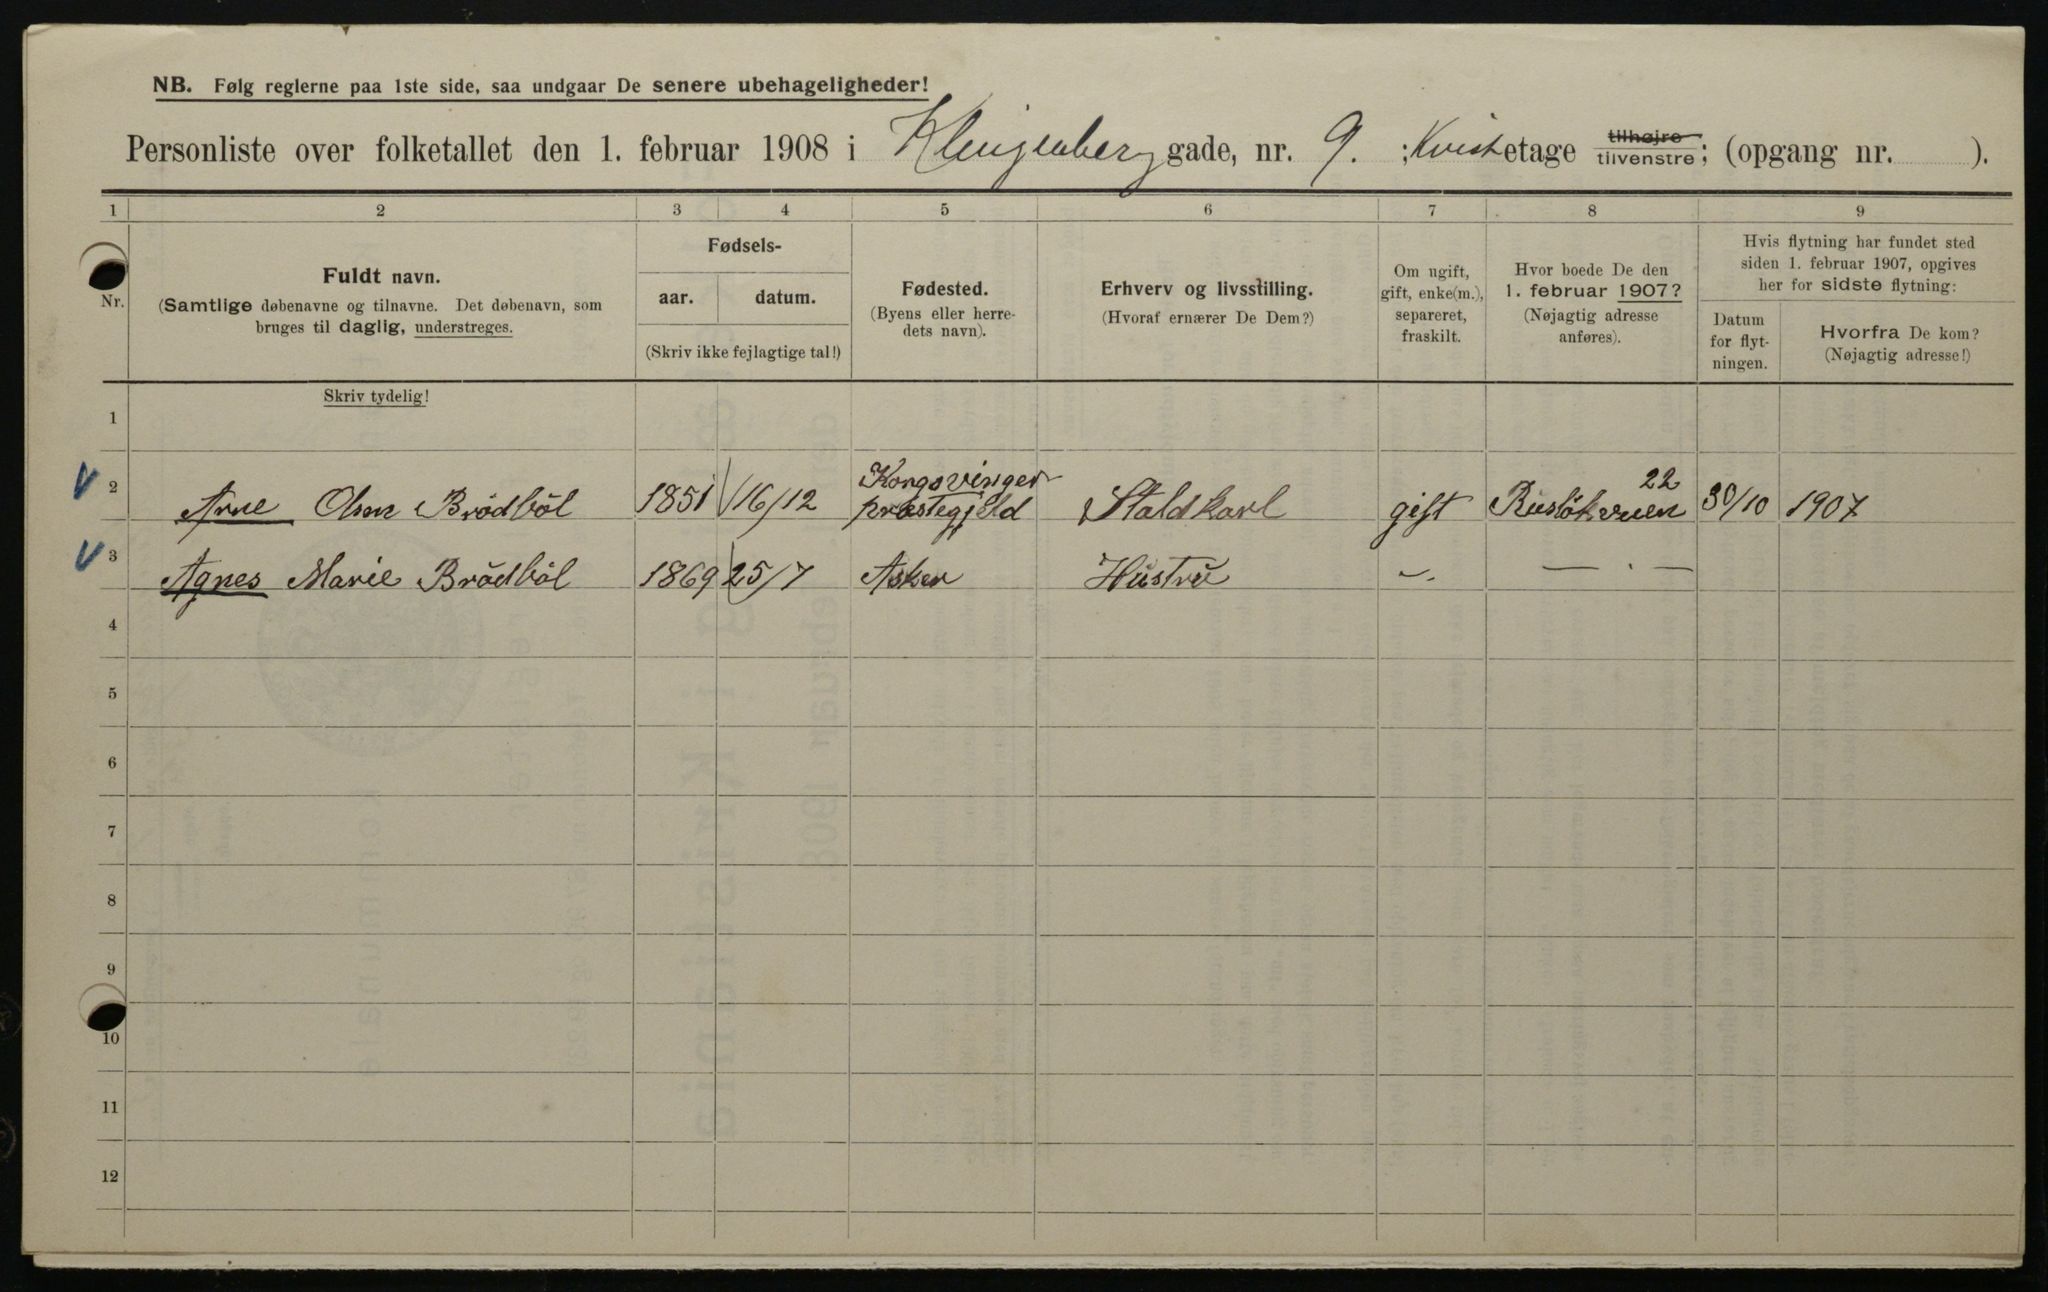 NB. Følg reglerne paa 1ste side, saa undgaar De senere ubehageligheder!
Personliste over folketallet den 1. februar 1908 i Klingenberg gade, nr. 9. ; Kvist etage tilhøjre tilvenstre; (opgang nr. ).
1 2 3 4 5 6 7 8 9
Nr.
Fuldt navn.
(Samtlige døbenavne og tilnavne. Det døbenavn, som
bruges til daglig, understreges.
Skriv tydelig!
Fødsels-
aar. datum.
(Skriv ikke fejlagtige tal!)
Fødested.
(Byens eller herre-
dets navn).
Erhverv og livsstilling.
(Hvoraf ernærer De Dem?)
Om ugift,
gift, enke(m.),
separeret,
fraskilt.
Hvor boede De den
1. februar 1907?
(Nøjagtig adresse
anføres).
Hvis flytning har fundet sted
siden 1. februar 1907, opgives
her for sidste flytning:
Datum
for flyt-
ningen.
Hvorfra De kom?
(Nøjagtig adresse!)
1
2 Arne Olsen Brödböl 1851 16/12 Kongsvinger præstegjeld Staldkarl gift Ruslökveien 22 30/10 1907
3 Agnes Marie Brödböl 1869 25/7 Asker Hustru -"- — . —
4
5
6
7
8
9
10
11
12